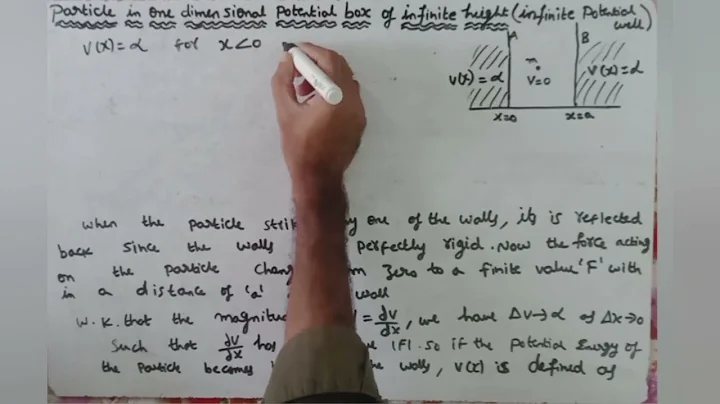 Particle in one dimensional Potential box of infinite height (infinite Potential well)
V(x) = α for x<0
A
B
V(x) = α
m
V=0
V(x) = α
x=0
x=a
when the particle any one of the walls, its is reflected
back since the walls perfectly rigid. Now the force acting
on the particle zero to a finite value 'F' with
in a distance of 'a' wall
W.K. that the = dV/dx, we have ΔV→α as Δx→0
Such that dV/dx |F|. so if the potential Energy of
the Particle becomes walls, V(x) is defined as